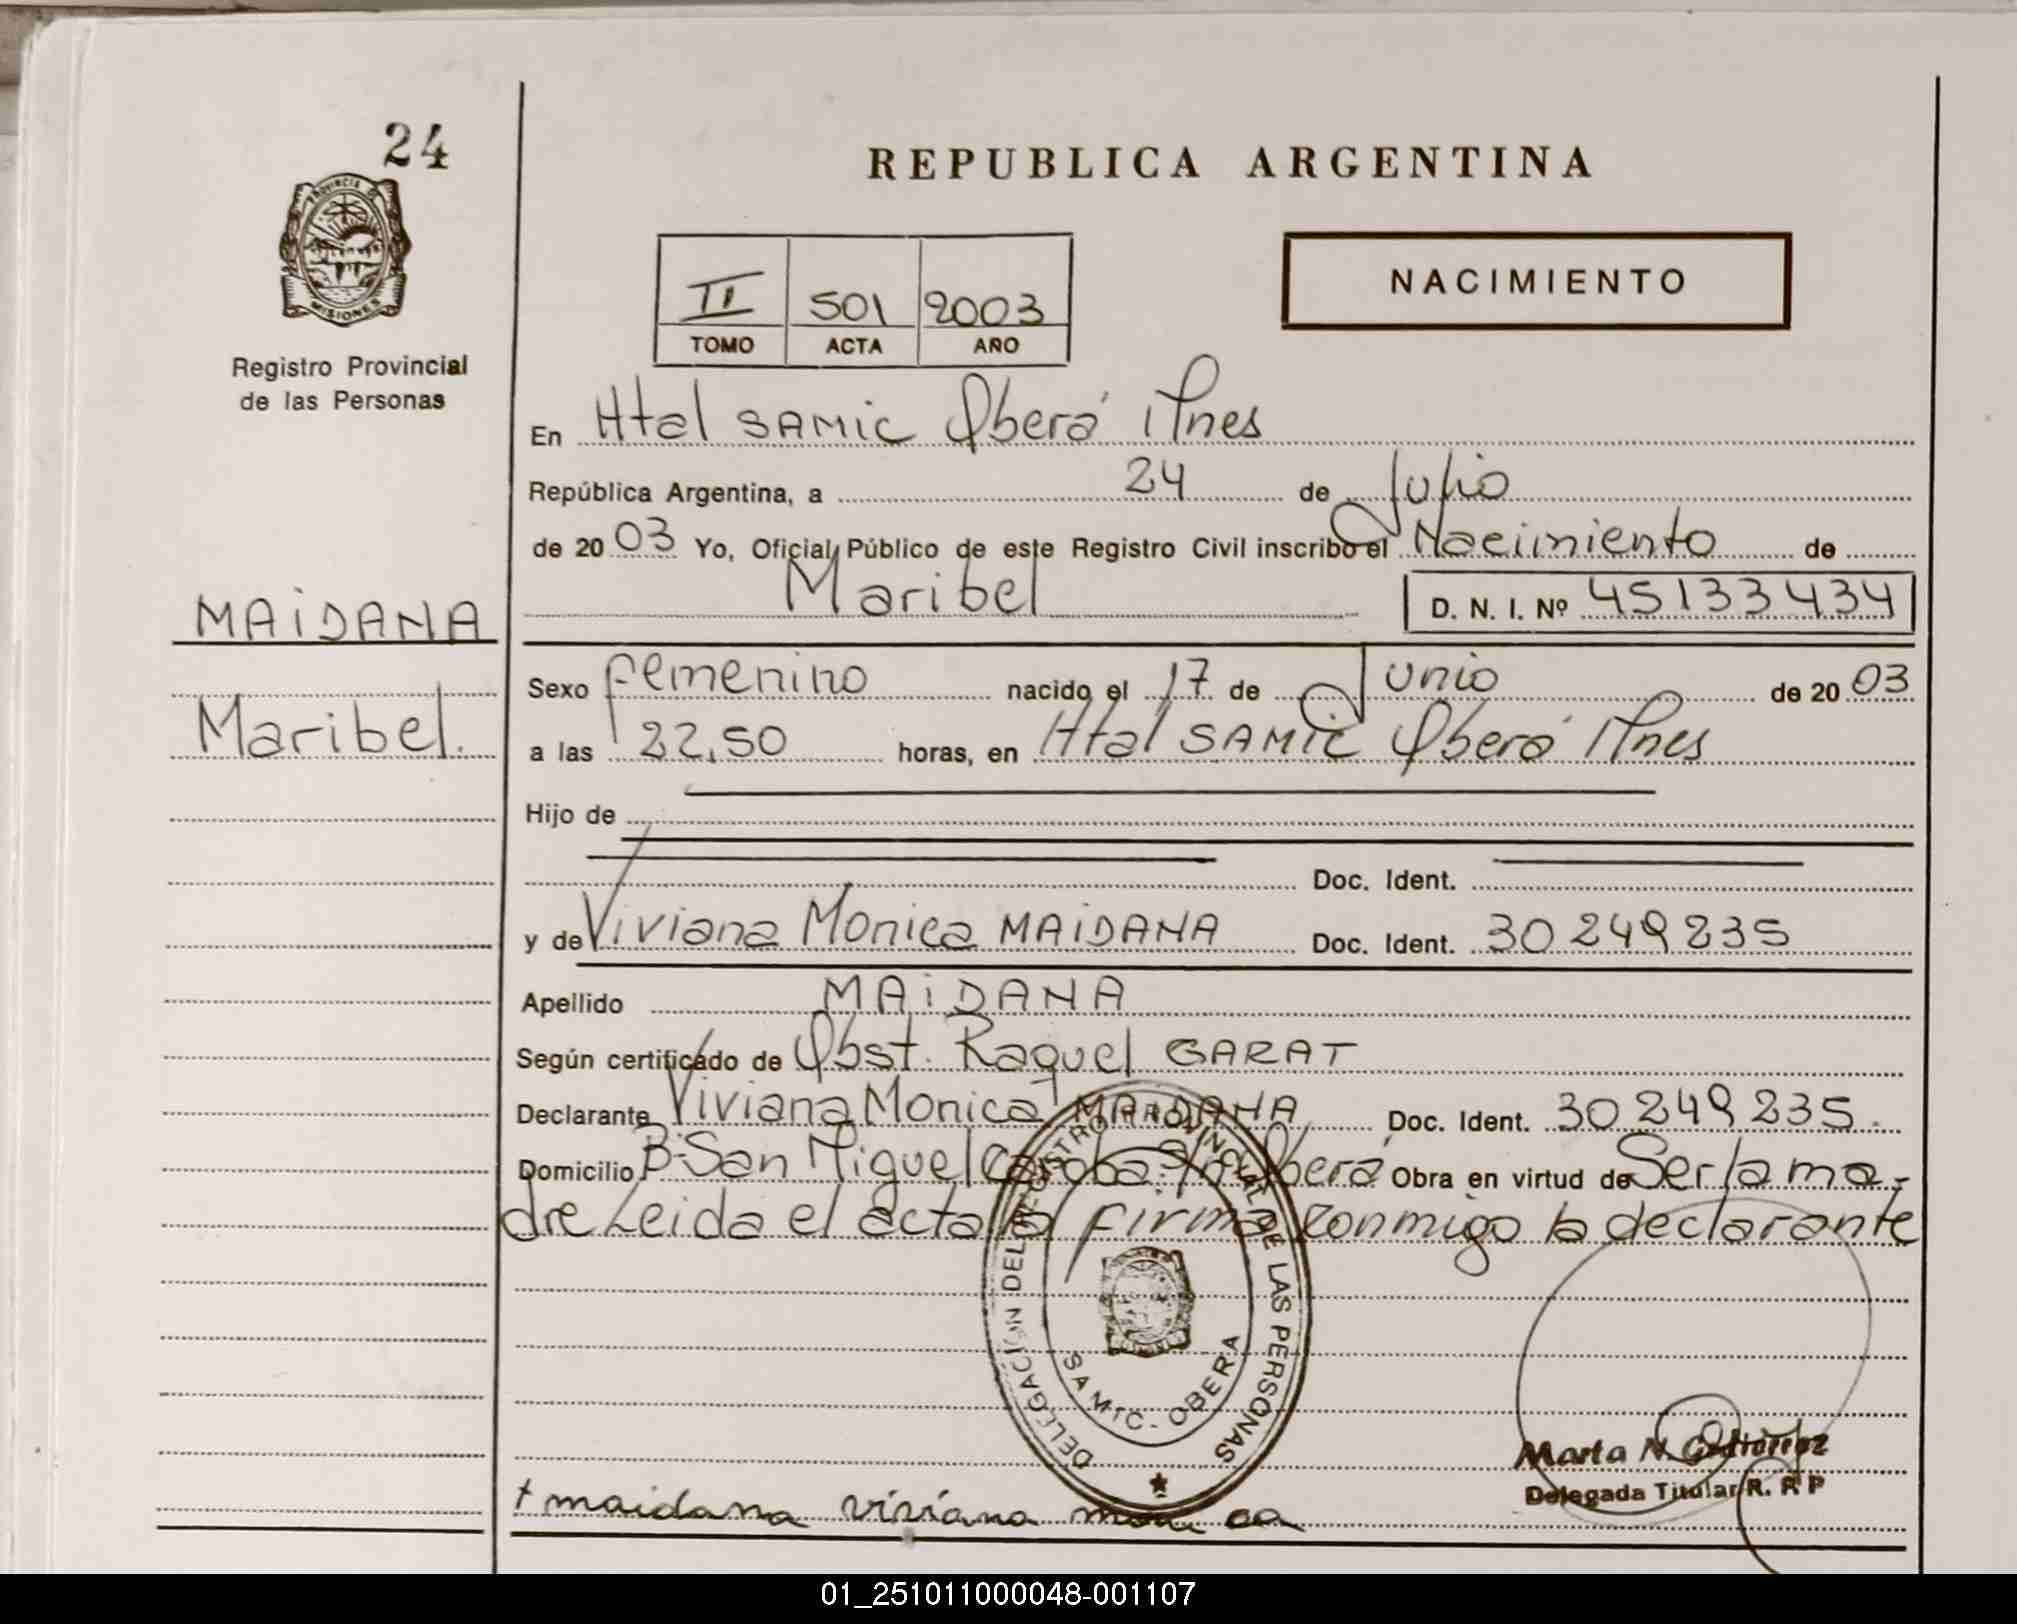 24
PROVINCIA DE
MISIONES
Registro Provincial
de las Personas
MAIDANA
Maribel.
REPUBLICA ARGENTINA
NACIMIENTO
II 501 2003
TOMO ACTA AÑO
En Htal SAMIC Oberá Mnes
República Argentina, a 24 de Julio
de 2003 Yo, Oficial Público de este Registro Civil inscribo el Nacimiento de
Maribel D. N. I. Nº 45133434
Sexo femenino nacido el 17 de Junio de 2003
a las 22,50 horas, en Htal SAMIC Oberá Mnes
Hijo de
Doc. Ident.
y de Viviana Monica MAIDANA Doc. Ident. 30249235
Apellido MAIDANA
Según certificado de Obst. Raquel GARAT
Declarante Viviana Monica MAIDANA Doc. Ident. 30249235.
Domicilio Bº San Miguel Oberá Obra en virtud de Ser la ma-
dre Leida el acta la firma conmigo la declarante
DELEGACION DEL REGISTRO PROVINCIAL DE LAS PERSONAS
SAMIC - OBERA
Marta N. Gutierrez
Delegada Titular R. R P
+ maidana viviana monica
01_251011000048-001107